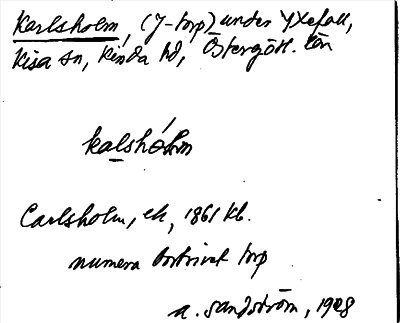 Karlsholm, (J-torp) under Yxefall,
Kisa sn, Kinda hd, Östergötl. län
kalshólm
Carlsholm, ek, 1861 kb.
numera bortrivet torp
A. Sandström, 1928